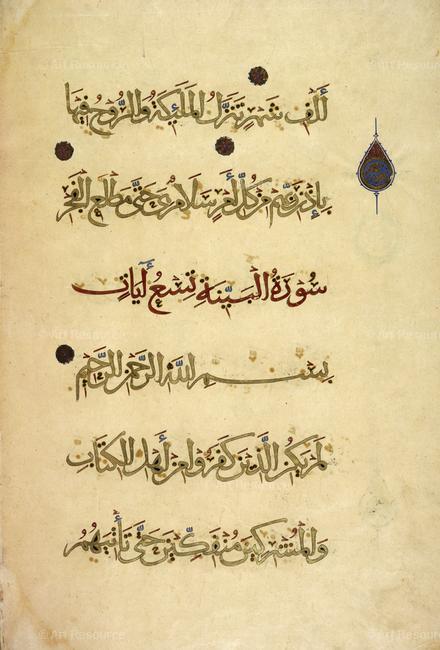 أَلْفِ شَهْرٍ تَنَزَّلُ الْمَلٰئِكَةُ وَالرُّوحُ فِيهَا
بِإِذْنِ رَبِّهِمْ مِنْ كُلِّ أَمْرٍ سَلَامٌ هِيَ حَتَّى مَطْلَعِ الْفَجْرِ
سُورَةُ الْبَيِّنَةِ تِسْعُ آيَاتٍ
بِسْمِ اللَّهِ الرَّحْمٰنِ الرَّحِيمِ
لَمْ يَكُنِ الَّذِينَ كَفَرُوا مِنْ أَهْلِ الْكِتَابِ
وَالْمُشْرِكِينَ مُنْفَكِّينَ حَتَّى تَأْتِيَهُمُ
© Art Resource